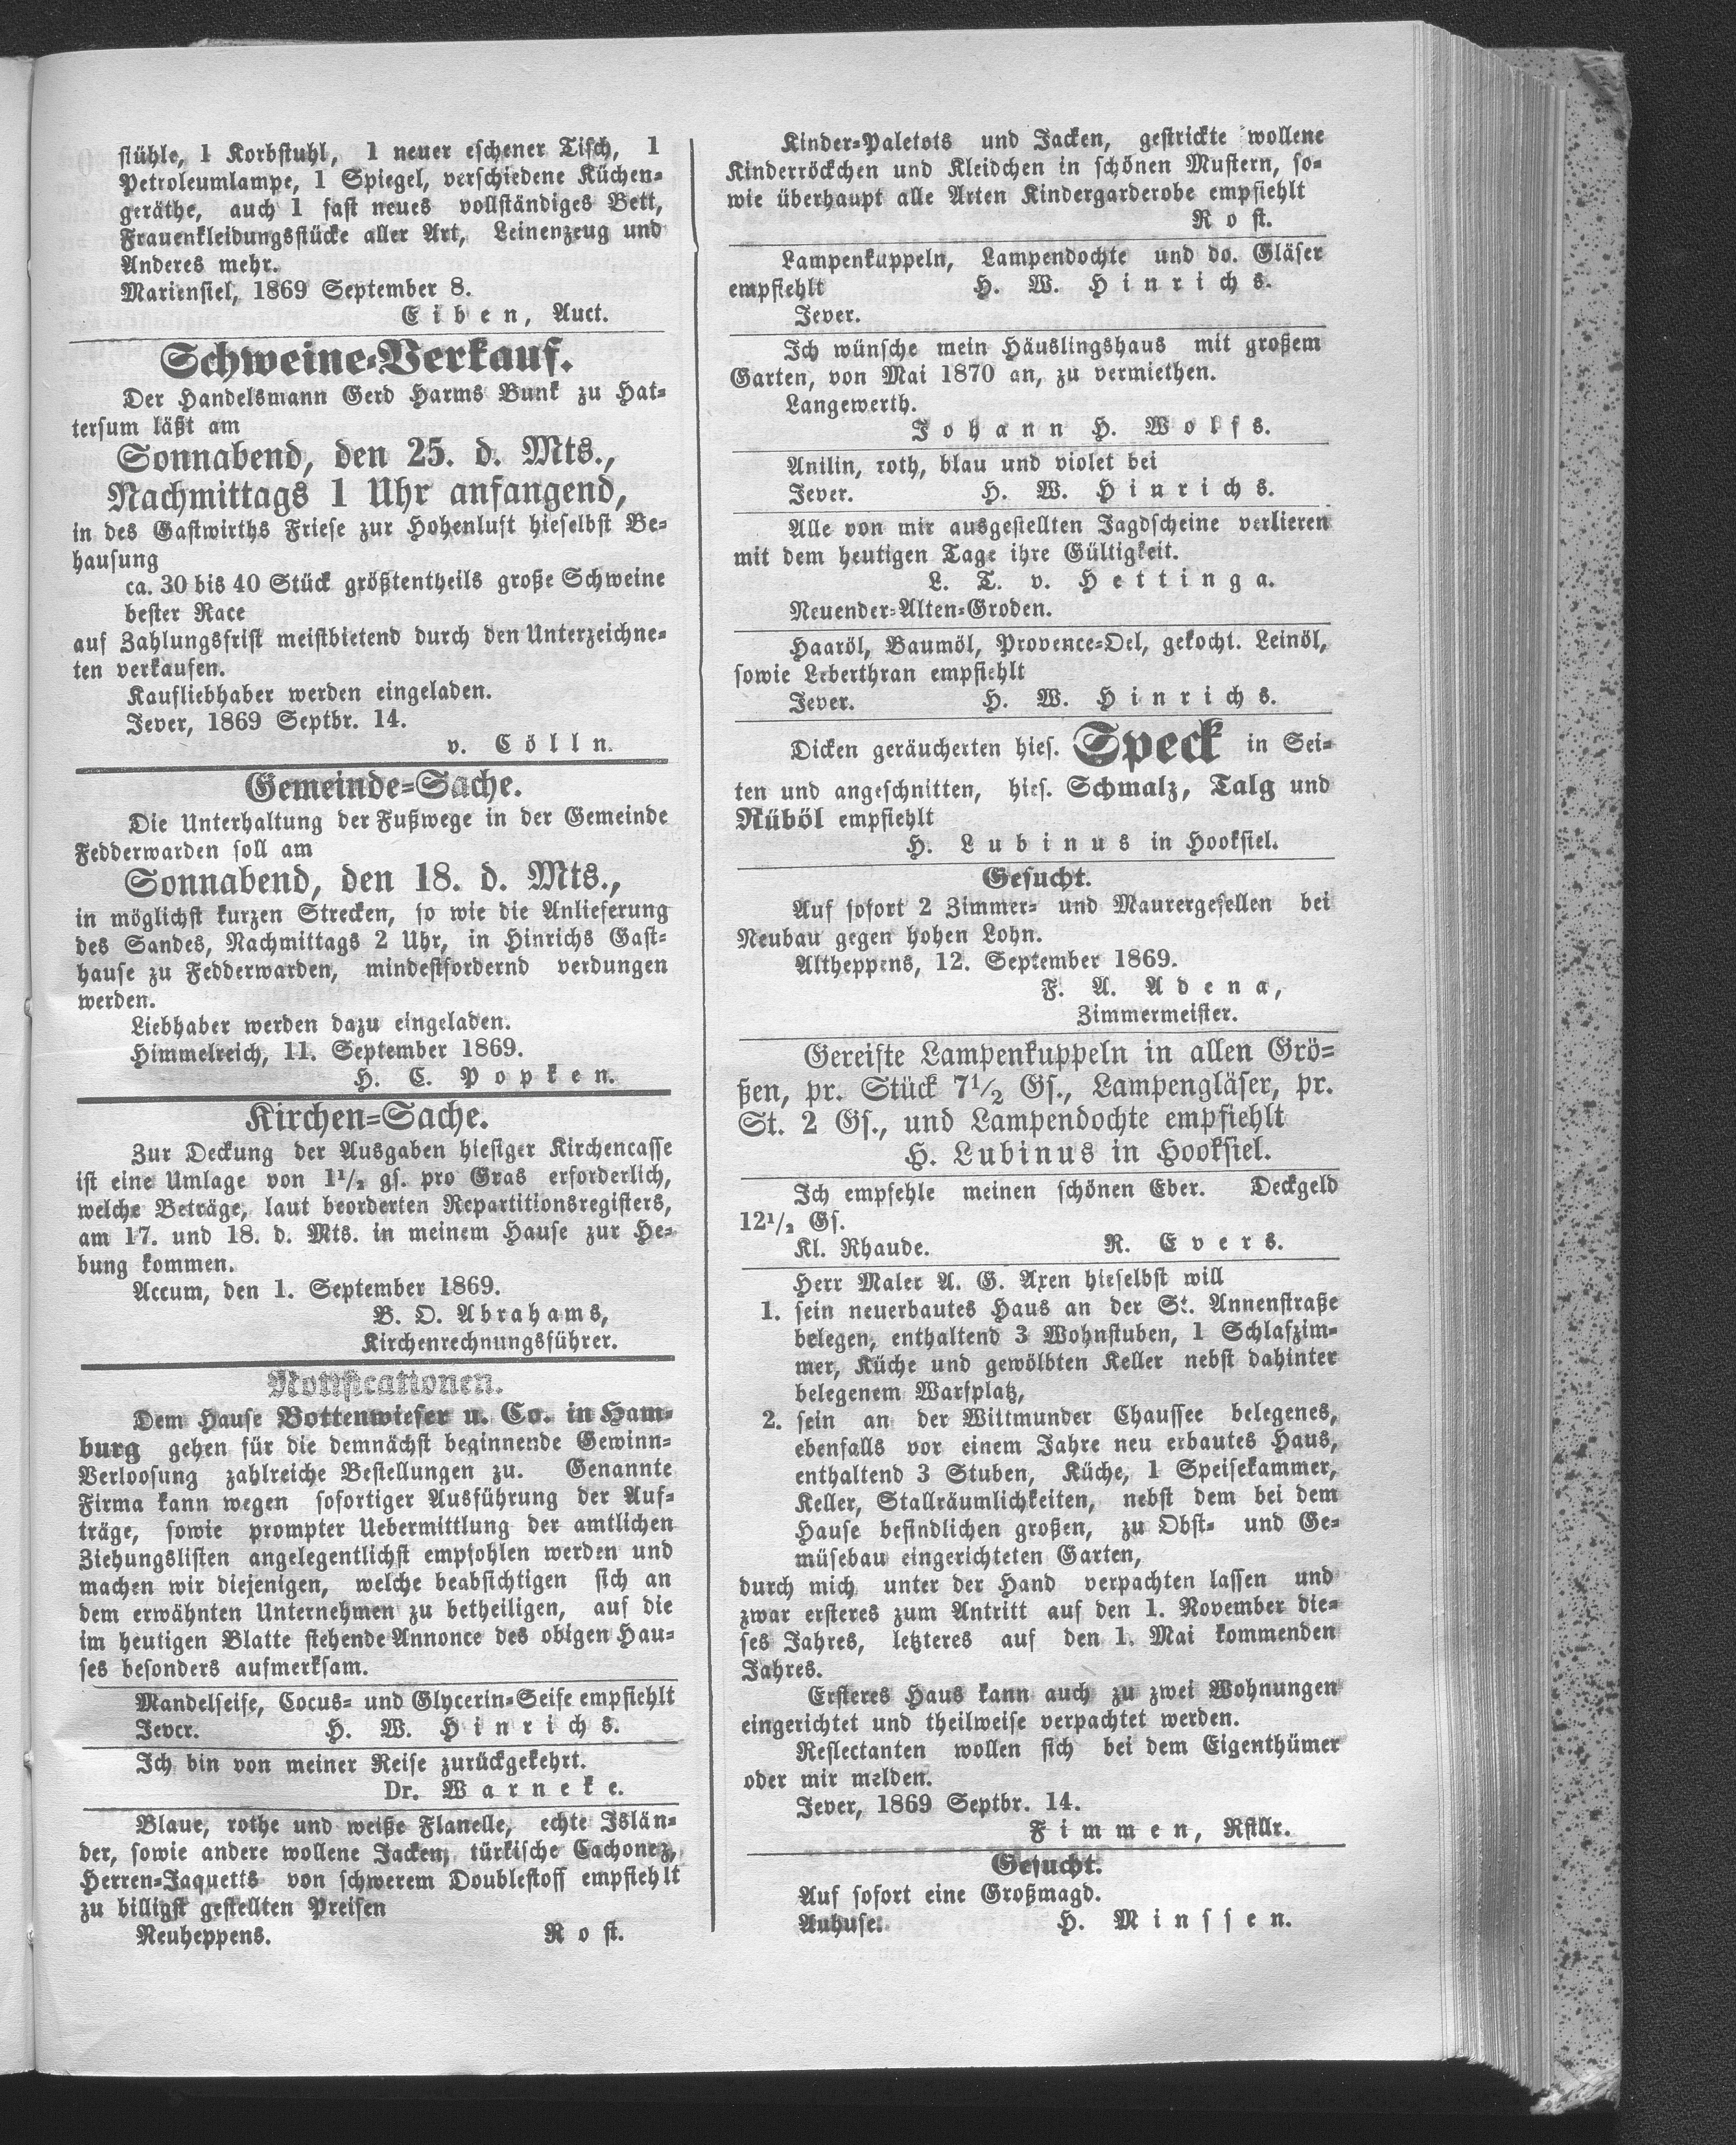 stühle, 1 Korbstuhl, 1 neuer eschener Tisch, 1
Petroleumlampe, 1 Spiegel, verschiedene Küchen-
geräthe, auch 1 fast neues vollständiges Bett,
Frauenkleidungsstücke aller Art, Leinenzeug und
Anderes mehr.
Mariensiel, 1869 September 8.
Eiben, Auct.
Schweine-Verkauf.
Der Handelsmann Gerd Harms Bunk zu Hat-
tersum läßt am
Sonnabend, den 25. d. Mts.,
Nachmittags 1 Uhr anfangend,
in des Gastwirths Friese zur Hohenluft hieselbst Be-
hausung
ca. 30 bis 40 Stück größtentheils große Schweine
bester Race
auf Zahlungsfrist meistbietend durch den Unterzeichne-
ten verkaufen.
Kaufliebhaber werden eingeladen.
Jever, 1869 Septbr. 14.
v. Cölln.
Gemeinde-Sache.
Die Unterhaltung der Fußwege in der Gemeinde
Fedderwarden soll am
Sonnabend, den 18. d. Mts.,
in möglichst kurzen Strecken, so wie die Anlieferung
des Sandes, Nachmittags 2 Uhr, in Hinrichs Gast-
hause zu Fedderwarden, mindestfordernd verdungen
werden.
Liebhaber werden dazu eingeladen.
Himmelreich, 11. September 1869.
H. C. Popken.
Kirchen-Sache.
Zur Deckung der Ausgaben hiesiger Kirchencasse
ist eine Umlage von 1 1/2 gs. pro Gras erforderlich,
welche Beträge, laut beorderten Repartitionsregisters,
am 17. und 18. d. Mts. in meinem Hause zur He-
bung kommen.
Accum, den 1. September 1869.
B. O. Abrahams,
Kirchenrechnungsführer.
Notificationen.
Dem Hause Bottenwieser u. Co. in Ham-
burg gehen für die demnächst beginnende Gewinn-
Verloosung zahlreiche Bestellungen zu. Genannte
Firma kann wegen sofortiger Ausführung der Auf-
träge, sowie prompter Uebermittlung der amtlichen
Ziehungslisten angelegentlichst empfohlen werden und
machen wir diejenigen, welche beabsichtigen sich an
dem erwähnten Unternehmen zu betheiligen, auf die
im heutigen Blatte stehende Annonce des obigen Hau-
ses besonders aufmerksam.
Mandelseife, Cocus- und Glycerin-Seife empfiehlt
Jever. H. W. Hinrichs.
Ich bin von meiner Reise zurückgekehrt.
Dr. Warneke.
Blaue, rothe und weiße Flanelle, echte Islän-
der, sowie andere wollene Jacken, türkische Cachonez,
Herren-Jaquetts von schwerem Doublestoff empfiehlt
zu billigst gestellten Preisen
Neuheppens. Rost.
Kinder-Paletots und Jacken, gestrickte wollene
Kinderröckchen und Kleidchen in schönen Mustern, so-
wie überhaupt alle Arten Kindergarderobe empfiehlt
Rost.
Lampenkuppeln, Lampendochte und do. Gläser
empfiehlt H. W. Hinrichs.
Jever.
Ich wünsche mein Häuslingshaus mit großem
Garten, von Mai 1870 an, zu vermiethen.
Langewerth.
Johann H. Wolfs.
Anilin, roth, blau und violet bei
Jever. H. W. Hinrichs.
Alle von mir ausgestellten Jagdscheine verlieren
mit dem heutigen Tage ihre Gültigkeit.
L. T. v. Hettinga.
Neuender-Alten-Groden.
Haaröl, Baumöl, Provence-Oel, gekocht. Leinöl,
sowie Leberthran empfiehlt
Jever. H. W. Hinrichs.
Dicken geräucherten hies. Speck in Sei-
ten und angeschnitten, hies. Schmalz, Talg und
Rüböl empfiehlt
H. Lubinus in Hooksiel.
Gesucht.
Auf sofort 2 Zimmer- und Maurergesellen bei
Neubau gegen hohen Lohn.
Altheppens, 12. September 1869.
F. A. Adena,
Zimmermeister.
Gereifte Lampenkuppeln in allen Grö-
ßen, pr. Stück 7 1/2 Gs., Lampengläser, pr.
St. 2 Gs., und Lampendochte empfiehlt
H. Lubinus in Hooksiel.
Ich empfehle meinen schönen Eber. Deckgeld
12 1/2 Gs.
Kl. Rhaude. R. Evers.
Herr Maler A. G. Axen hieselbst will
1. sein neuerbautes Haus an der St. Annenstraße
belegen, enthaltend 3 Wohnstuben, 1 Schlafzim-
mer, Küche und gewölbten Keller nebst dahinter
belegenem Warfplatz,
2. sein an der Wittmunder Chaussee belegenes,
ebenfalls vor einem Jahre neu erbautes Haus,
enthaltend 3 Stuben, Küche, 1 Speisekammer,
Keller, Stallräumlichkeiten, nebst dem bei dem
Hause befindlichen großen, zu Obst- und Ge-
müsebau eingerichteten Garten,
durch mich unter der Hand verpachten lassen und
zwar ersteres zum Antritt auf den 1. November die-
ses Jahres, letzteres auf den 1. Mai kommenden
Jahres.
Ersteres Haus kann auch zu zwei Wohnungen
eingerichtet und theilweise verpachtet werden.
Reflectanten wollen sich bei dem Eigenthümer
oder mir melden.
Jever, 1869 Septbr. 14.
Fimmen, Rstllr.
Gesucht.
Auf sofort eine Großmagd.
Auhuse. H. Minssen.